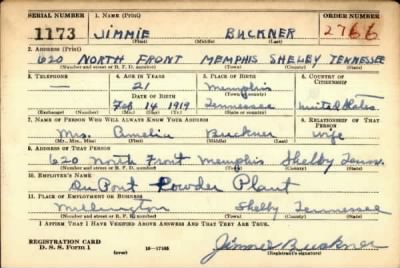 SERIAL NUMBER 1. NAME (Print) ORDER NUMBER
1173 JIMMIE BUCKNER 2766
(First) (Middle) (Last)
2. ADDRESS (Print)
620 NORTH FRONT MEMPHIS SHELBY TENNESSEE
(Number and street or R. F. D. number) (Town) (County) (State)
3. TELEPHONE 4. AGE IN YEARS 5. PLACE OF BIRTH 6. COUNTRY OF CITIZENSHIP
— 21 Memphis
DATE OF BIRTH (Town or county)
Feb 14 1919 Tennessee United States
(Exchange) (No.) (Mo.) (Day) (Yr.) (State or country)
7. NAME OF PERSON WHO WILL ALWAYS KNOW YOUR ADDRESS 8. RELATIONSHIP OF THAT PERSON
Mrs. Amelia Buckner wife
(Mr., Mrs., Miss) (First) (Middle) (Last)
9. ADDRESS OF THAT PERSON
620 North Front Memphis Shelby Tenn.
(Number and street or R. F. D. number) (Town) (County) (State)
10. EMPLOYER'S NAME
Du Pont Powder Plant
11. PLACE OF EMPLOYMENT OR BUSINESS
Millington Shelby Tennessee
(Number and street or R. F. D. number) (Town) (County) (State)
I AFFIRM THAT I HAVE VERIFIED ABOVE ANSWERS AND THAT THEY ARE TRUE.
REGISTRATION CARD
D. S. S. Form 1 (over) 16—17105 Jimmie Buckner
(Registrant's signature)